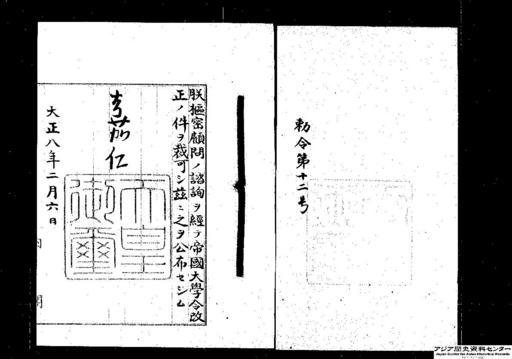 勅令第十二号
朕樞密顧問ノ諮詢ヲ經テ帝國大學令改
正ノ件ヲ裁可シ茲ニ之ヲ公布セシム
嘉仁
天皇御璽
大正八年二月六日
内閣
アジア歴史資料センター
Japan Center for Asian Historical Records